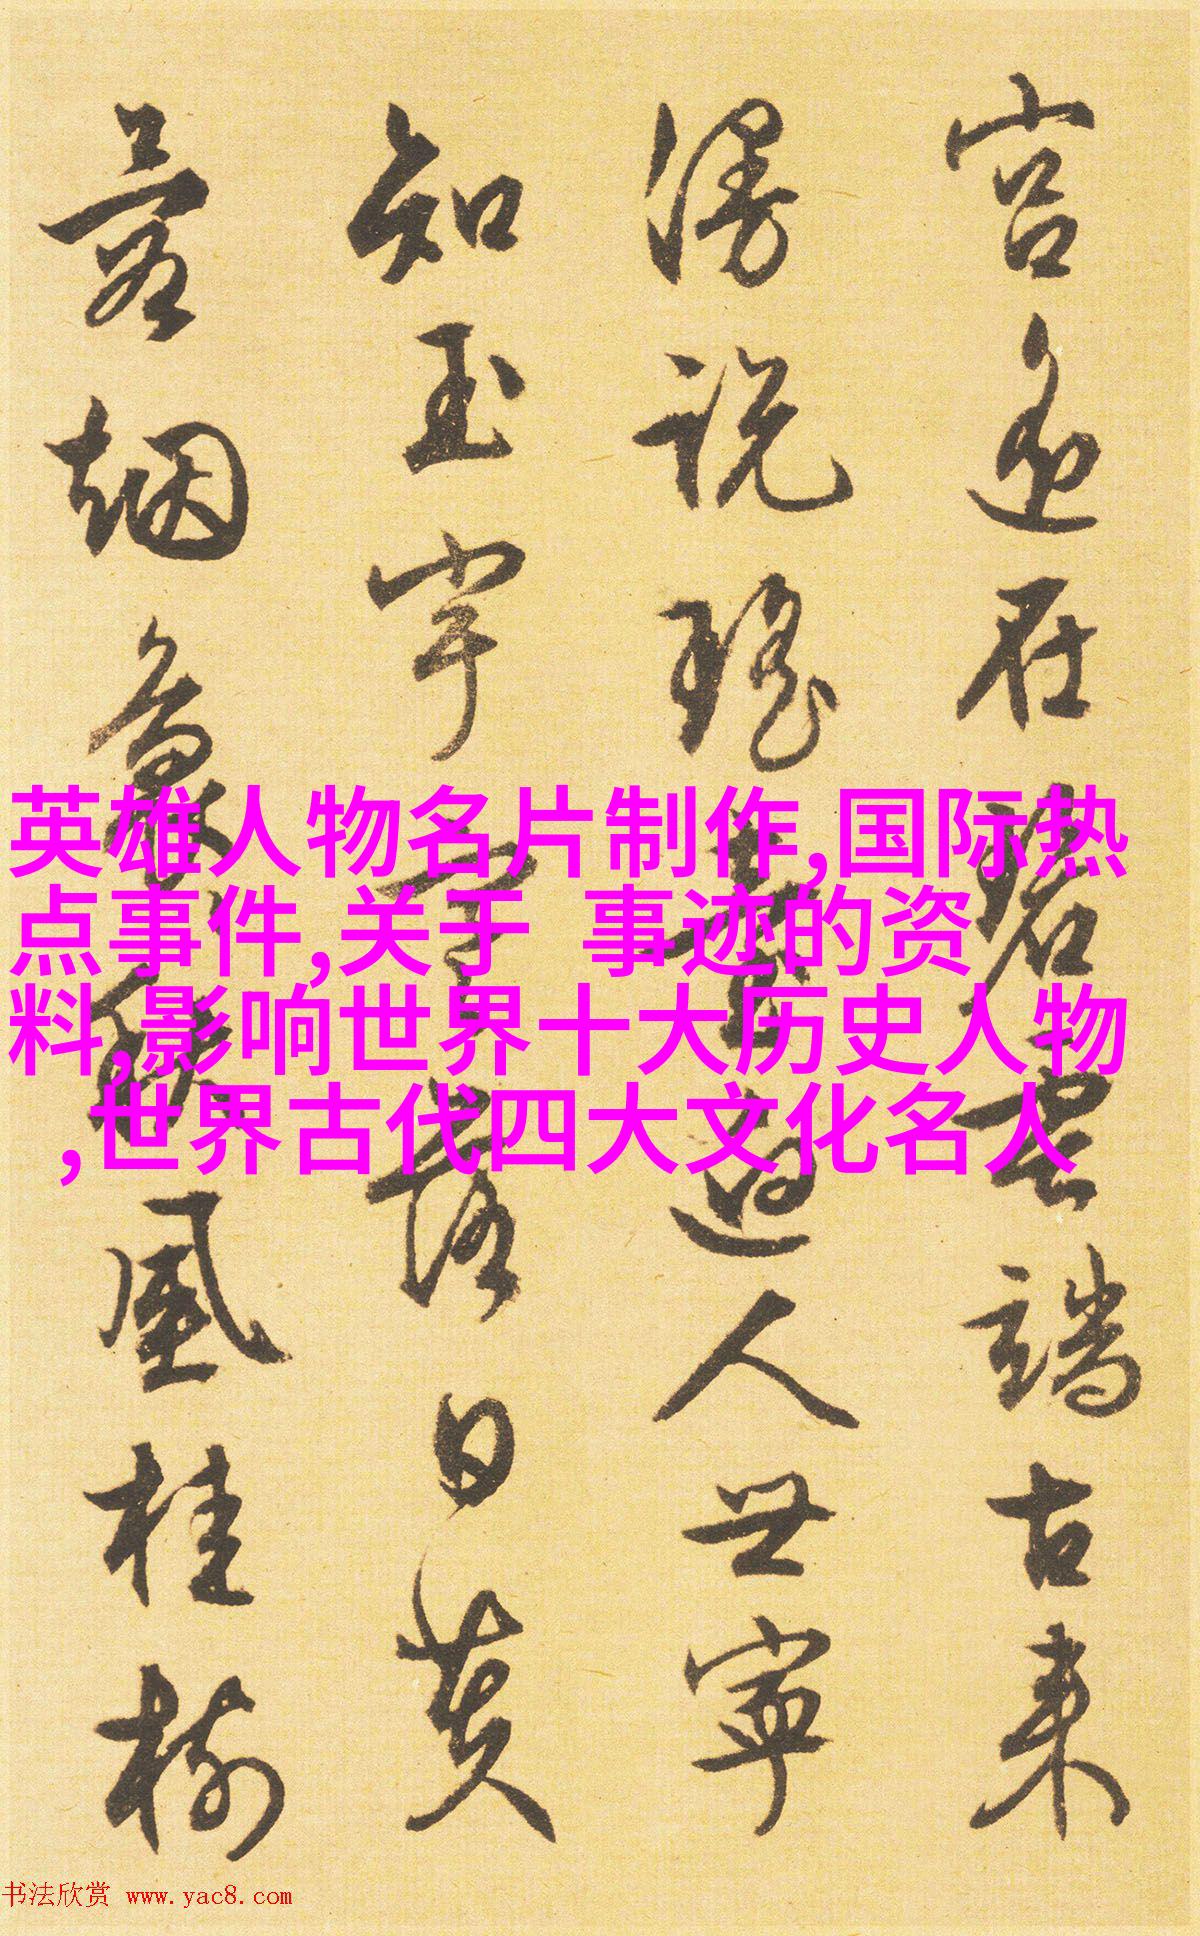 宫在碧雲端古来
漫説瑶臺迥人世寧
知玉宇落日黄
烟象風桂樹
英雄人物名片制作,国际热
点事件,关于 事迹的资
料,影响世界十大历史人物
,世界古代四大文化名人
书法欣赏 www.yac8.com